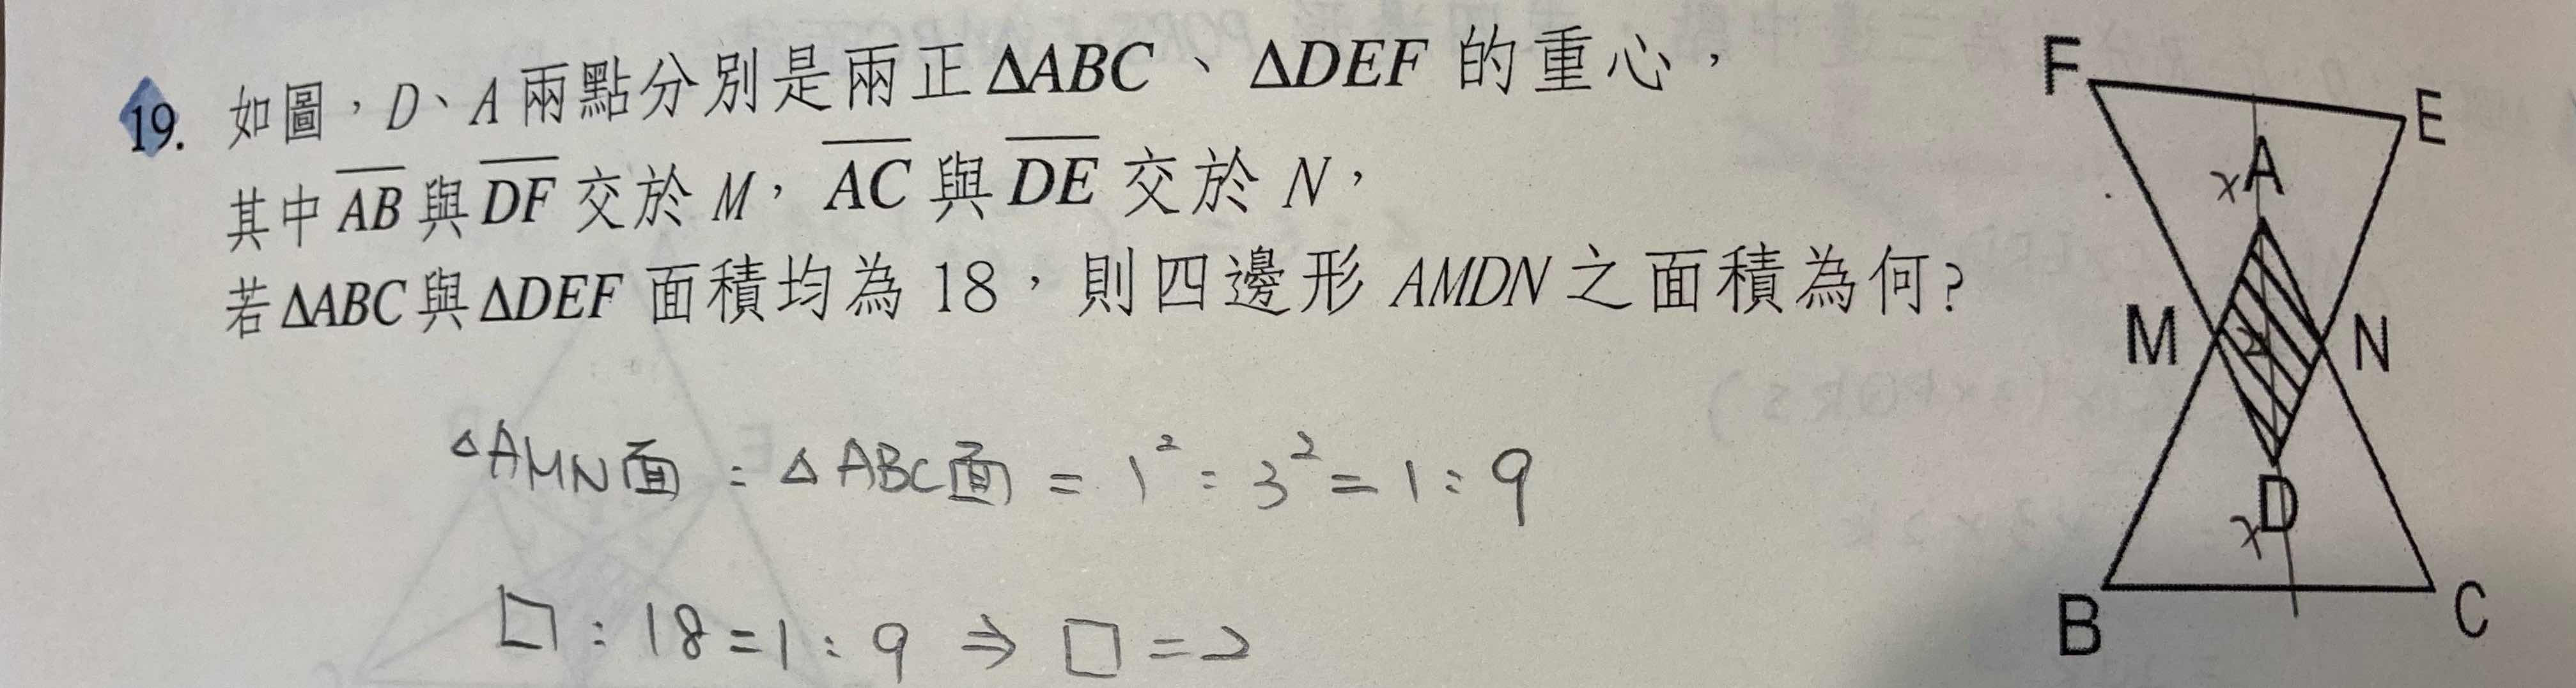 19. 如圖，D、A兩點分別是兩正ΔABC、ΔDEF的重心，
其中AB與DF交於M，AC與DE交於N，
若ΔABC與ΔDEF面積均為18，則四邊形AMDN之面積為何?
ΔAMN面：ΔABC面 = 1²：3² = 1：9
□：18 = 1：9 ⇒ □ = 2
F
E
x A
M
2
N
x D
B
C